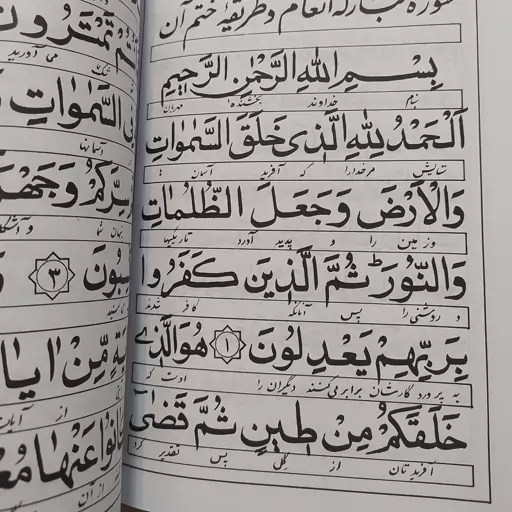 سوره مبارکه انعام و طریقهٔ ختم آن
بِسْمِ اللهِ الرَّحْمٰنِ الرَّحِیمِ
بنام خداوند بخشنده مهربان
اَلْحَمْدُ لِلّٰهِ الَّذِی خَلَقَ السَّمٰوَاتِ
ستایش مرخدایرا که آفرید آسمان
وَالْاَرْضَ وَجَعَلَ الظُّلُمَاتِ
و زمین را و پدید آورد تاریکیها
وَالنُّورَ ثُمَّ الَّذِینَ کَفَرُوا
و روشنی را پس آنانکه کافر شدند
بِرَبِّهِمْ یَعْدِلُونَ ١ هُوَ الَّذِی
به پروردگارشان برابر می‌کنند دیگران را اوست که
خَلَقَکُمْ مِنْ طِینٍ ثُمَّ قَضٰی
آفریدتان از گِل پس تقدیر کرد
تَمْتَرُونَ
می آورید
فِی السَّمٰوَاتِ
آسمانها
سِرَّکُمْ وَجَهْرَ
٣
مِنْ اٰیَا
از آیات
عَنْهَا
از آن